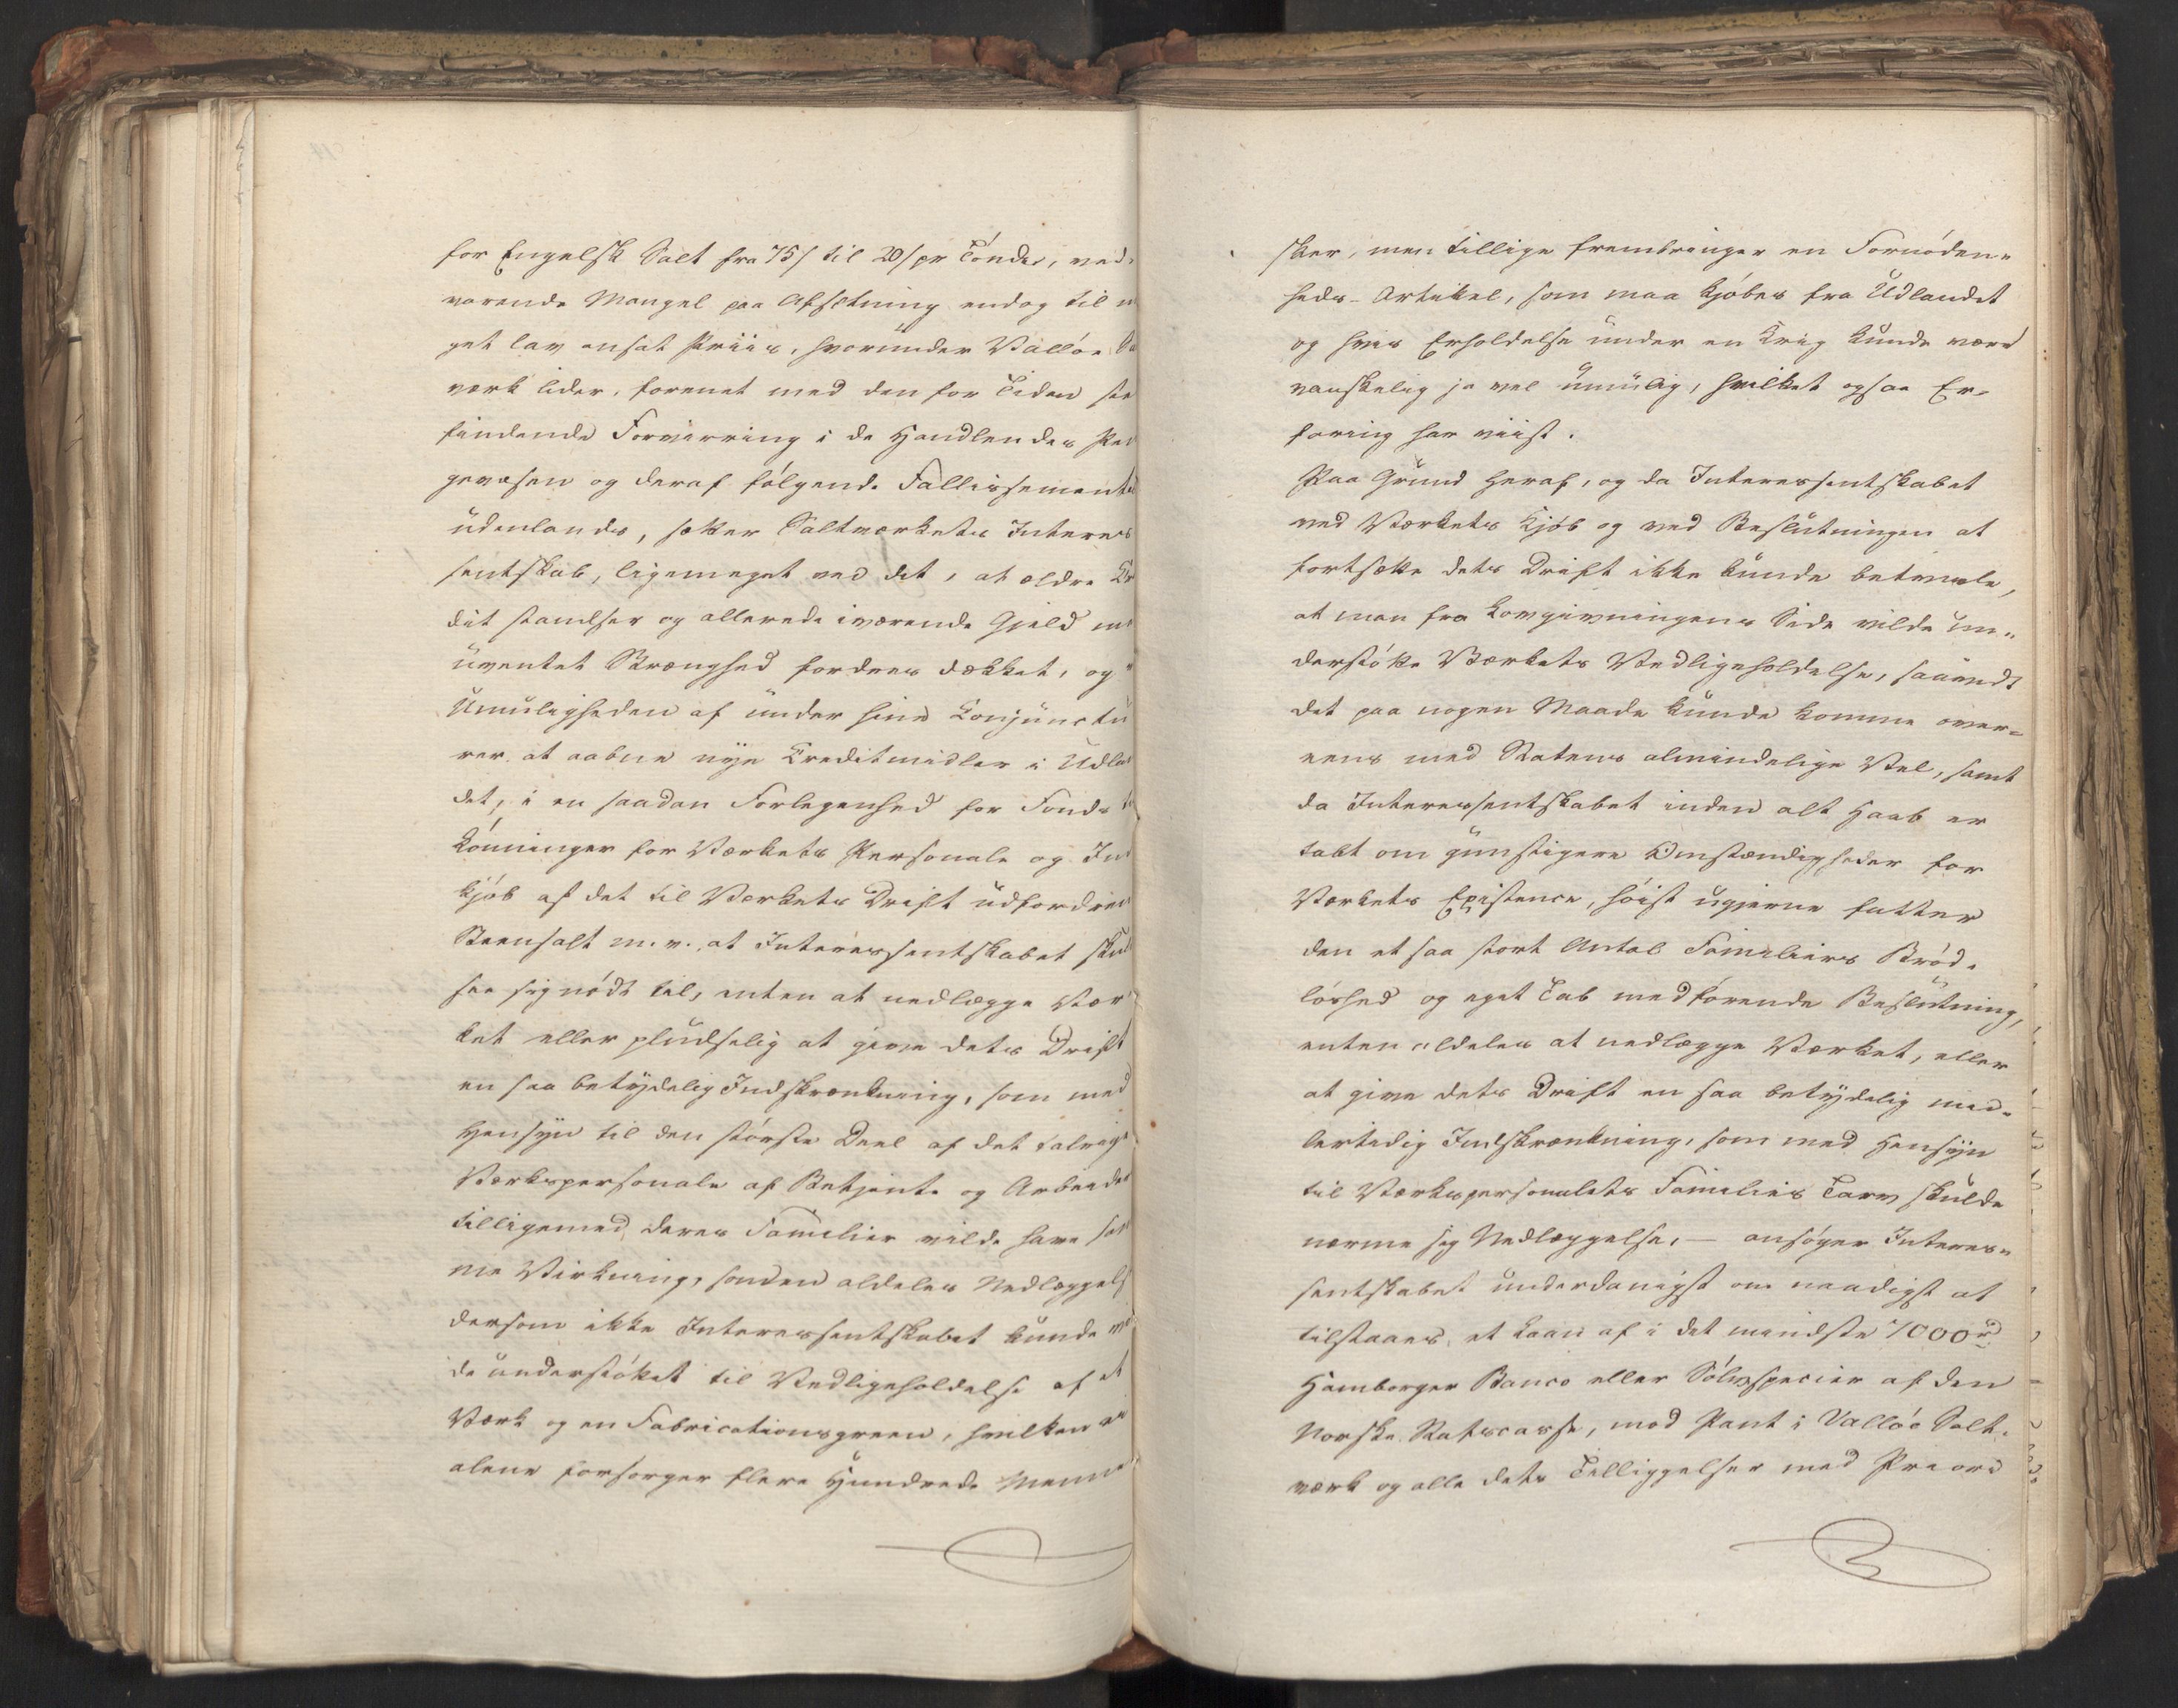 for Engelsk Salt fra 75/ til 20/ pr Tønde, ved-
varende Mangel paa Afsetning endog til
get lav ansat Priis, hvorunder Valløe
verk lider, forenet med den for Tiden
findende Forvirring i de Handlendes
gevæsen og deraf følgende Fallissementer
udenlands, sætter Saltverkets Interes
sentskab, ligemeget ved det, at ældre
dit standser og allerede iværende Gjeld
uventet Strænghed fordres dækket, og
Umuligheden af under hine Conjunctu
rer at aabne nye Creditmidler i Udlan
det, i en saadan Forlegenhed for Fonds
Lønninger for Værkets Personale og Ind
kjøb af det til Værkets Drift udfordrende
Steensalt m. v. at Interessentskabet
see sig nødt til, enten at nedlægge Vær
ket eller pludselig at give dets Drift
en saa betydelig Indskrænkning, som med
Hensyn til den største Deel af det talrige
Værkspersonale af Betjente og Arbeider
tilligemed deres Familier vilde have
me Virkning, som den aldeles Nedlæggels
dersom ikke Interessentskabet kunde
de understøttet til Vedligeholdelse af et
Værk og en Fabricationsgreen, hvilken
alene forsørger flere Hundrede Menne
sker, men tillige frembringer en Fornøden-
heds-Artikel, som maa kjøbes fra Udlandet
og hvis Erholdelse under en Krig kunde være
vanskelig ja vel umulig, hvilket ogsaa Er-
faring har viist.
Paa Grund heraf, og da Interessentskabet
ved Værkets Kjøb og ved Beslutningen at
fortsætte dets Drift ikke kunde betvivle,
at man fra Lovgivningens Side vilde un-
derstøtte Værkets Vedligeholdelse, saavidt
det paa nogen Maade kunde komme over-
eens med Statens almindelige Vel, samt
da Interessentskabet inden alt Haab er
tabt om gunstigere Omstændigheder for
Værkets Existence, høist ugjerne fatter
den et saa stort Antal Familiers Brød-
løshed og eget Tab medførende Beslutning,
enten aldeles at nedlægge Værket, eller
at give dets Drift en saa betydelig mid-
lertidig Indskrænkning, som med Hensyn
til Værkspersonalets Familiers Tarv skulde
nærme sig Nedlæggelse, — ansøger Interes-
sentskabet underdanigst om naadigst at
tilstaaes et Laan af i det mindste 7000 rd
Hamborger Banco eller Sølvspecier af den
Norske Statscasse, mod Pant i Valløe Salt-
værk og alle dets Tilliggelser med Priori